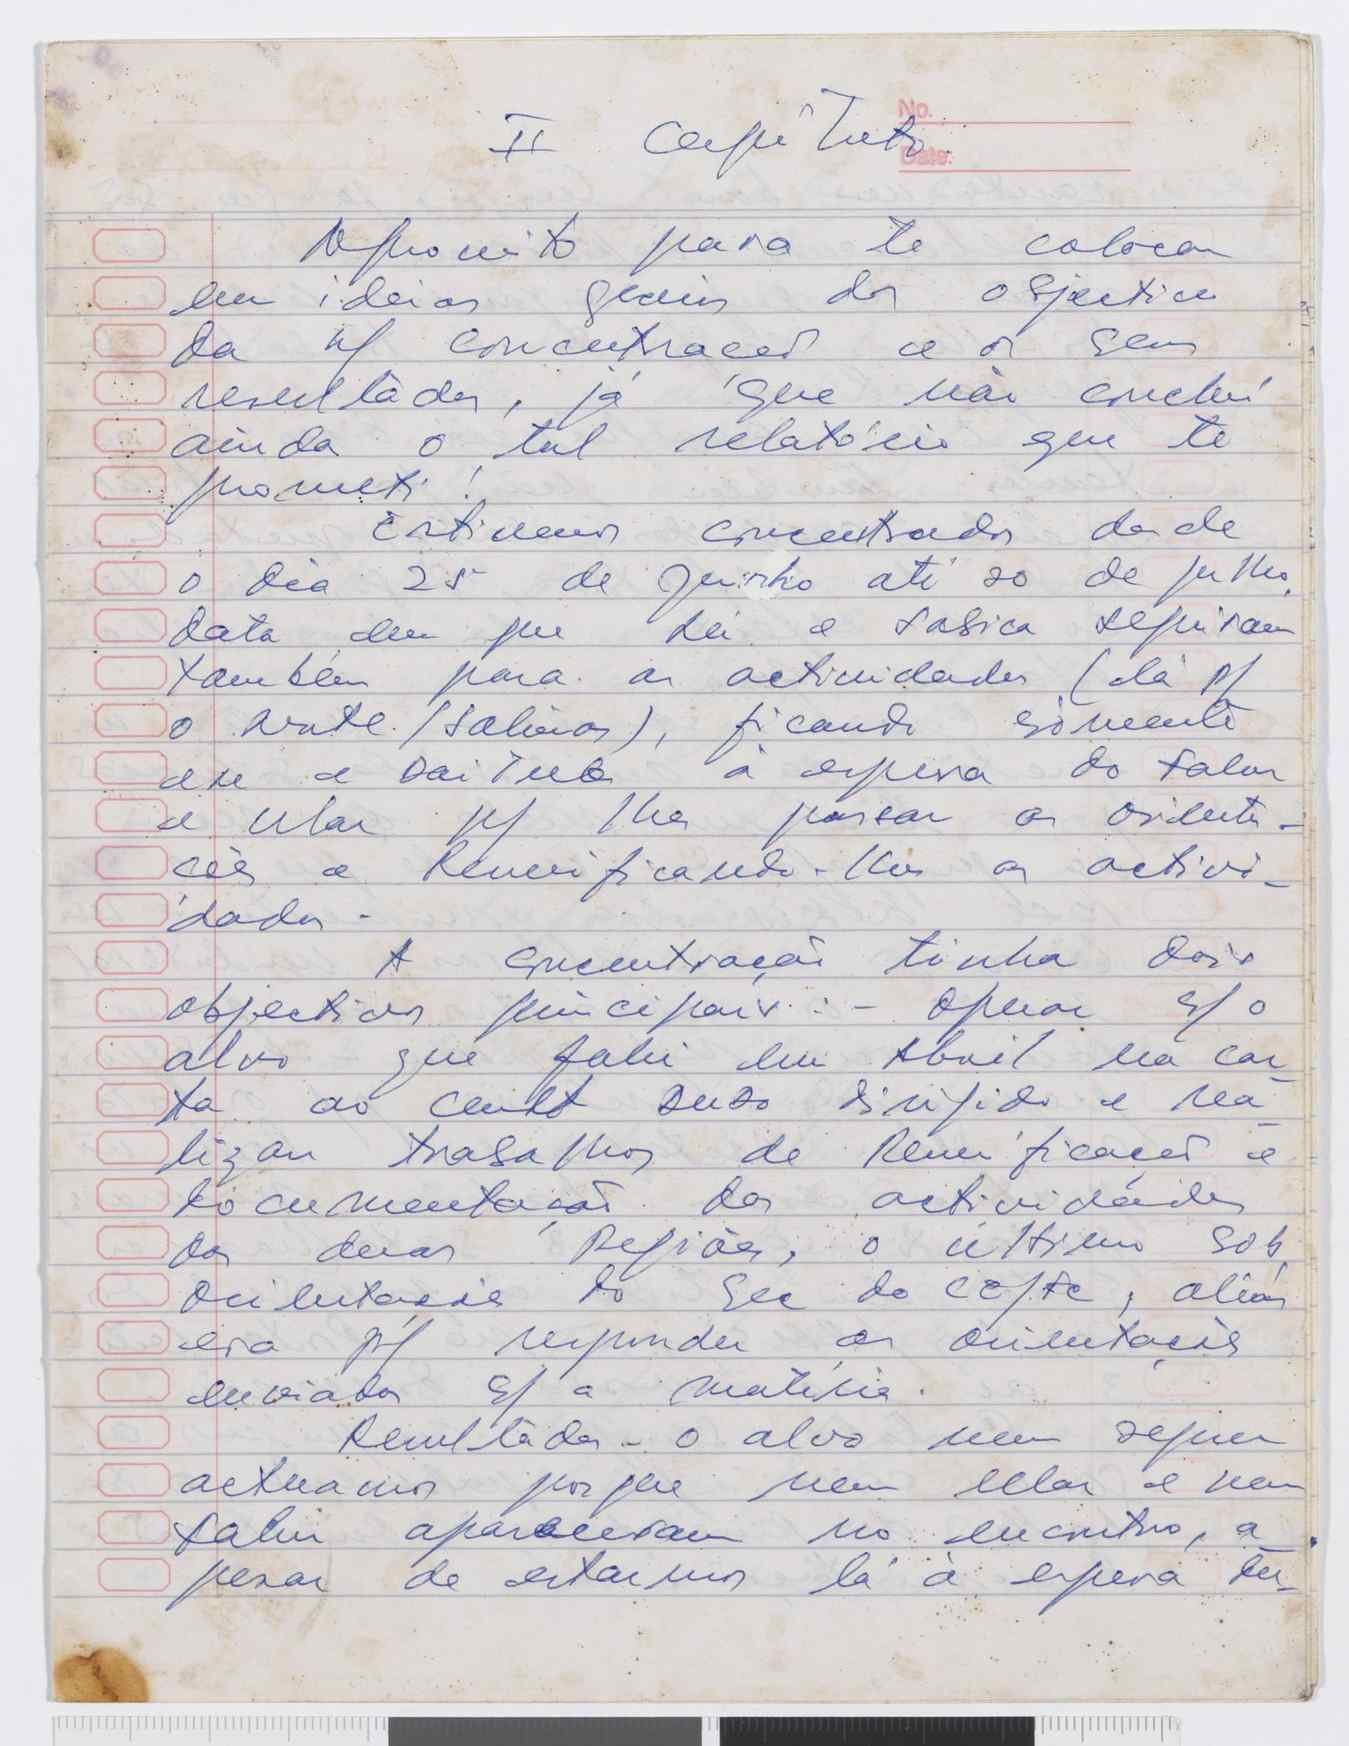 No.
Date:
II Capítulo
Aproveito para te colocar
em ideias gerais dos objectivos
da n/ concentração e os seus
resultados, já que não conclui
ainda o tal relatório que te
prometi!
Estivemos concentrados desde
o dia 25 de Junho até 20 de julho,
data em que Lei e Sabica seguiram
também para as actividades (ela p/
o norte /Salinas), ficando sòmente
eu e Daitula à espera do Falur
e Ular p/ lhes passar as orienta-
ções e Renerificando-lhes as activi-
dades.
A concentração tinha dois
objectivos principais: - operar s/ o
alvo que falei em Abril na car-
ta ao dirigido e rea-
lizar trabalhos de Renerificação e
documentação das actividades
das duas Regiões, o último sob
orientação do Sec do CC/FR, aliás
era p/ responder as orientações
enviadas s/ a matéria.
Resultados - o alvo nem sequer
actuamos porque nem Ular e nem
Falur apareceram no encontro, a
pesar de estarmos lá à espera